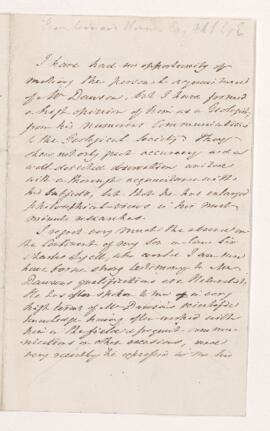 From Leonard Horner Esq.
I have had no opportunity of
making the personal acquaintance
of Mr Dawson, but I have formed
a high opinion of him as a Geologist,
from his numerous Communications
to the Geological Society. They
show, not only great accuracy and a
well directed observation united
with a thorough acquaintance with
his subjects, but that he has enlarged
philosophical views in his most
minute researches.
I regret very much the absence on
the Continent of my son in law Sir
Charles Lyell, who would I am sure
have borne strong testimony to Mr
Dawsons qualifications as a Naturalist.
He has often spoken to me in very
high terms of Mr Dawson's scientific
knowledge having often worked with
him in the field & frequent commu-
nications on other occasions, and
very recently he expressed to me his